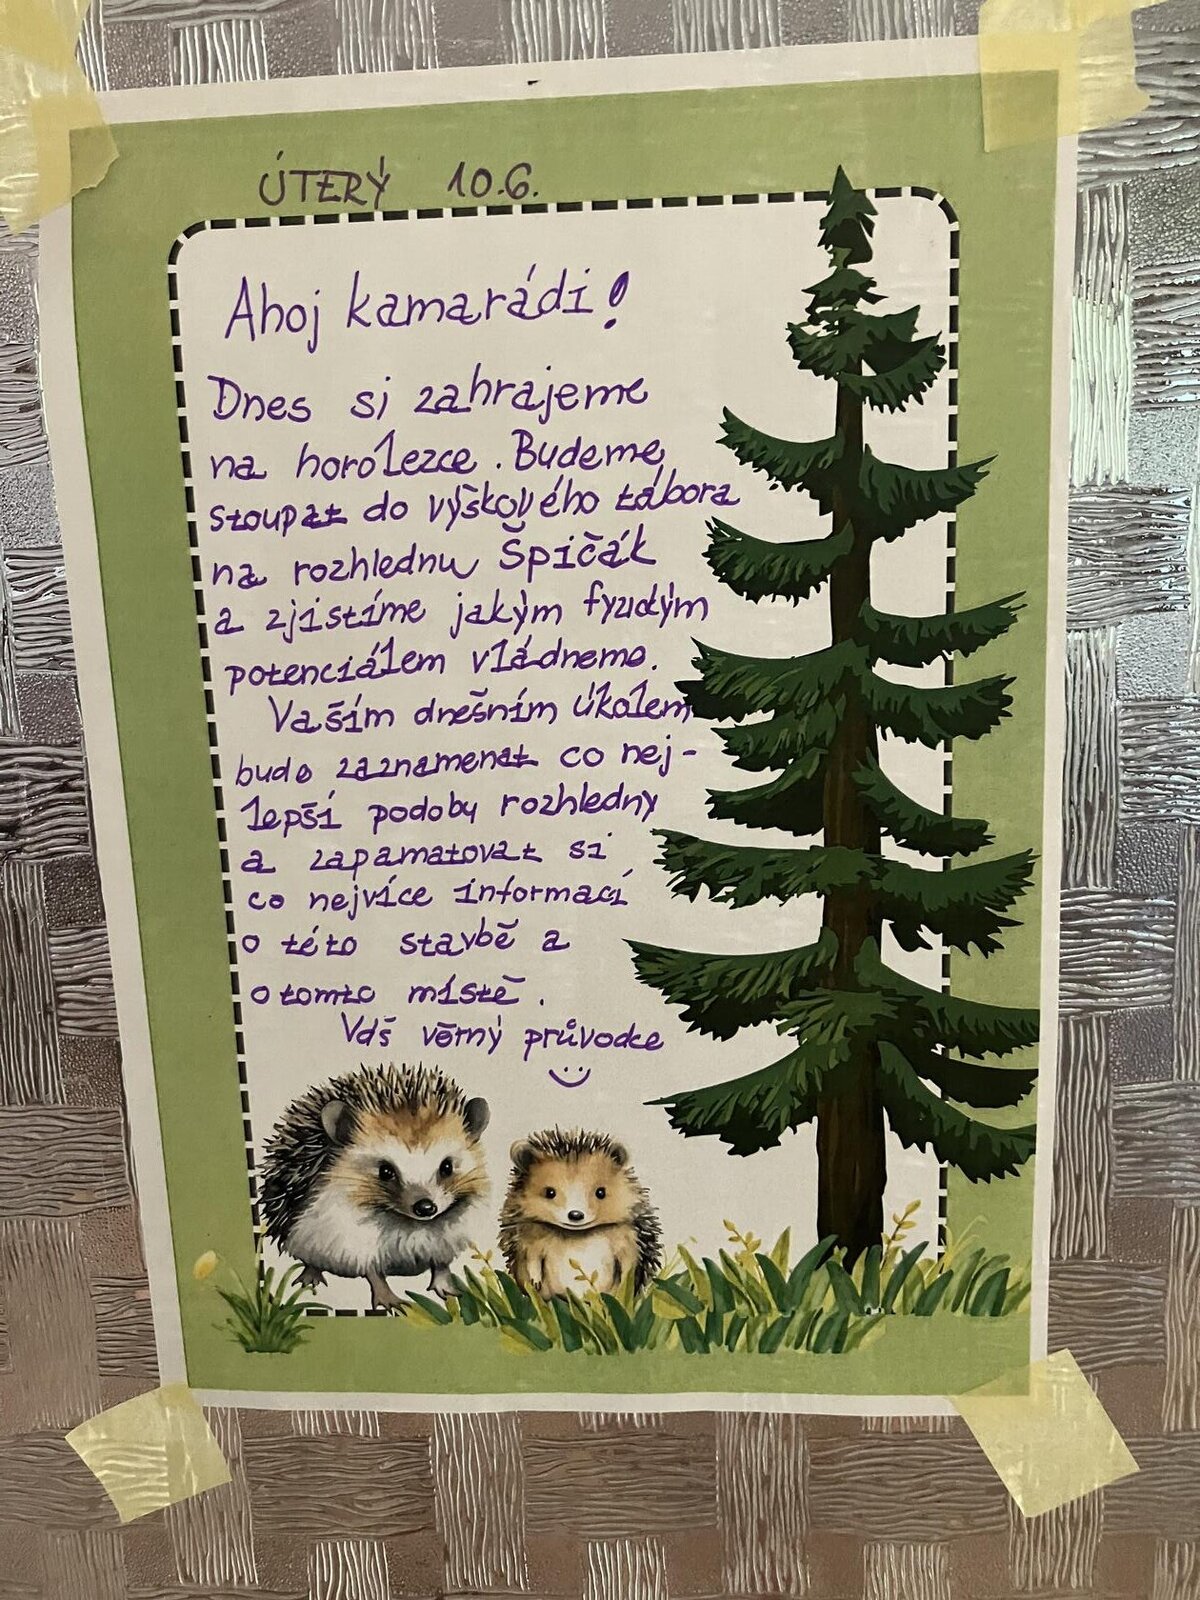 ÚTERÝ 10.6.
Ahoj kamarádi!
Dnes si zahrajeme
na horolezce. Budeme
stoupat do výškového tábora
na rozhlednu Špičák
a zjistíme jakým fyzickým
potenciálem vládneme.
Vaším dnešním úkolem
bude zaznamenat co nej-
lepší podoby rozhledny
a zapamatovat si
co nejvíce informací
o této stavbě a
o tomto místě.
Váš věrný průvodce